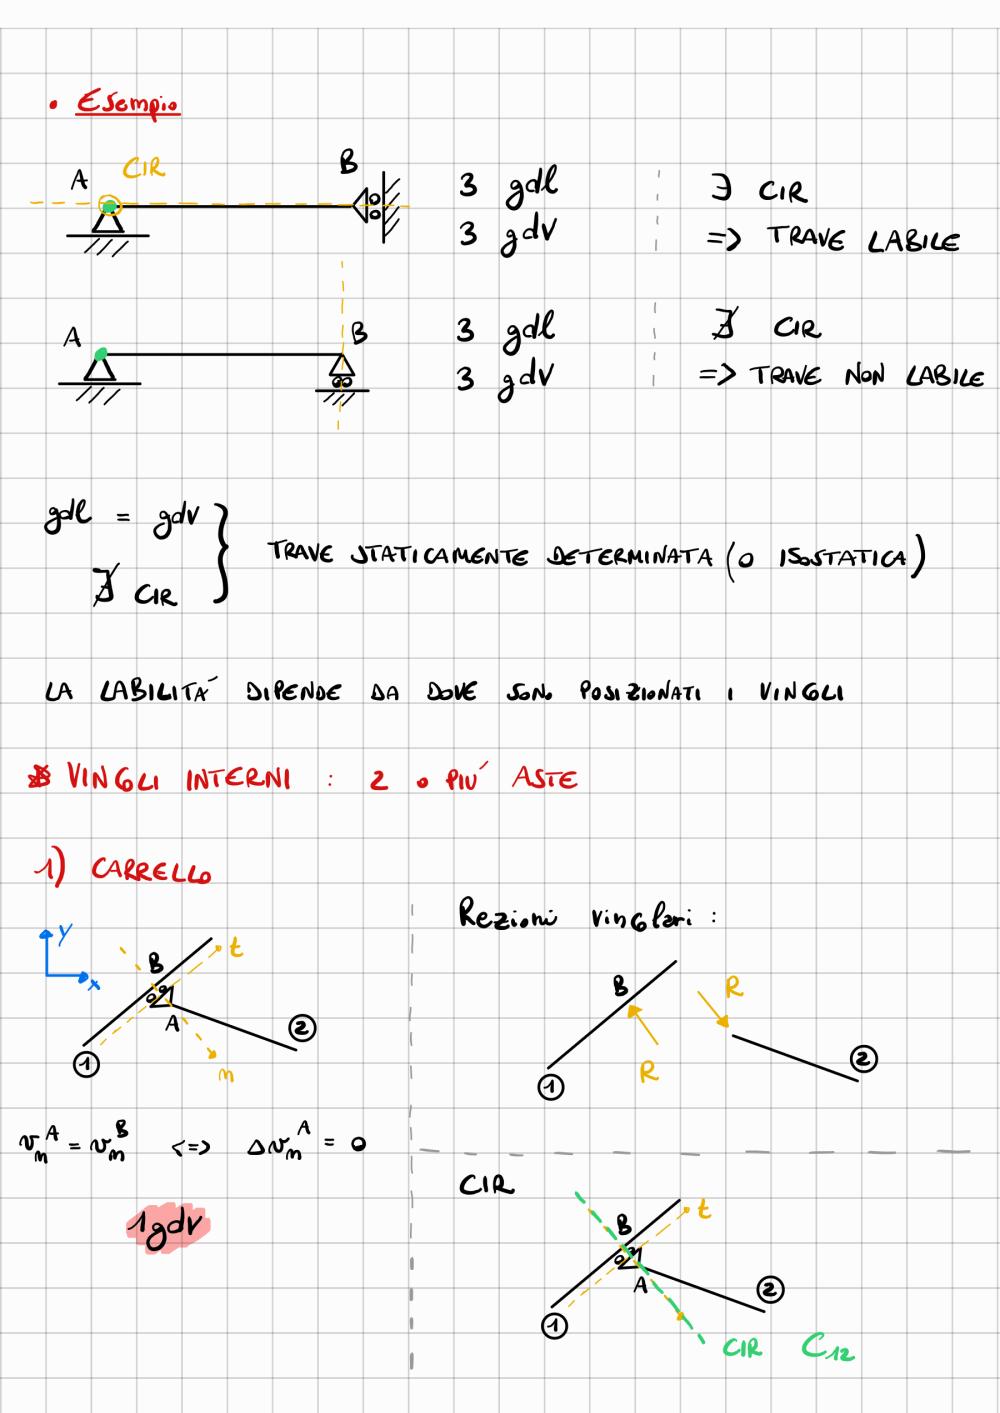 • Esempio
A CIR B
3 gdl
3 gdv
∃ CIR
=> TRAVE LABILE
A B
3 gdl
3 gdv
∄ CIR
=> TRAVE NON LABILE
gdl = gdv
∄ CIR
} TRAVE STATICAMENTE DETERMINATA (O ISOSTATICA)
LA LABILITA' DIPENDE DA DOVE SONO POSIZIONATI I VINCOLI
VINCOLI INTERNI : 2 O PIU' ASTE
1) CARRELLO
y
x
B t
A
1
2
n
v_n^A = v_n^B <=> Δv_n^A = 0
1gdv
Rezioni vincolari :
B R
R
1
2
CIR
B t
A
1
2
CIR C_12